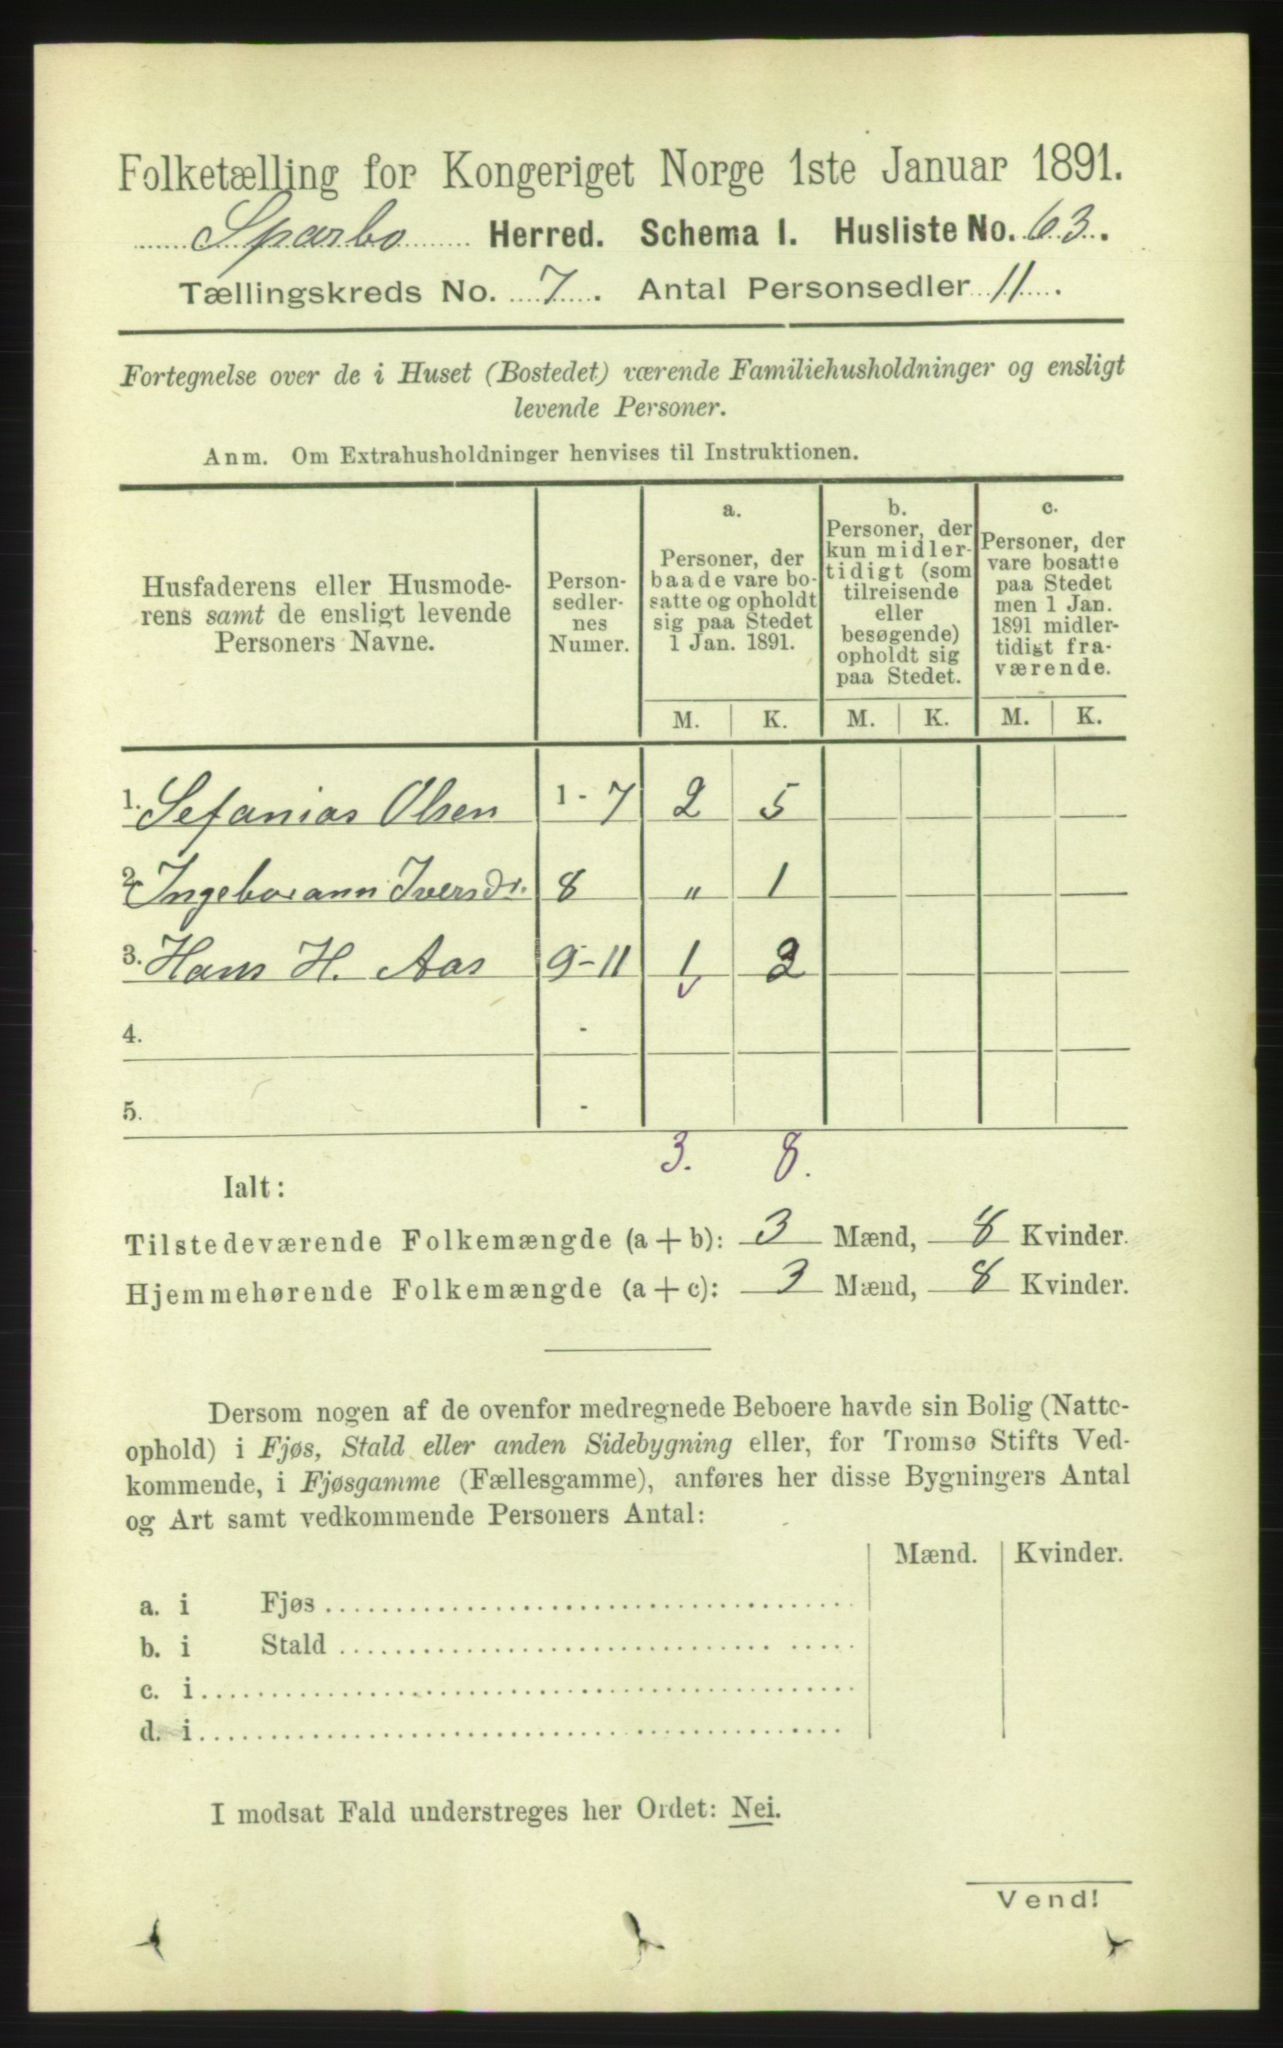 Folketælling for Kongeriget Norge 1ste Januar 1891.
Sparbo Herred. Schema I. Husliste No. 63.
Tællingskreds No. 7. Antal Personsedler 11.
Fortegnelse over de i Huset (Bostedet) værende Familiehusholdninger og ensligt
levende Personer.
Anm. Om Extrahusholdninger henvises til Instruktionen.
Husfaderens eller Husmode-
rens samt de ensligt levende
Personers Navne.
Person-
sedler-
nes
Numer.
a.
Personer, der
baade vare bo-
satte og opholdt
sig paa Stedet
1 Jan. 1891.
b.
Personer, der
kun midler-
tidigt (som
tilreisende
eller
besøgende)
opholdt sig
paa Stedet.
c.
Personer, der
vare bosatte
paa Stedet
men 1 Jan.
1891 midler-
tidigt fra-
værende.
M. K. M. K. M. K.
1. Sefanias Olsen 1 - 7 2 5
2. Ingeborann Iversdr. 8 " 1
3. Hans H. Aas 9-11 1 2
4. -
5. -
3. 8.
Ialt:
Tilstedeværende Folkemængde (a + b): 3 Mænd, 8 Kvinder.
Hjemmehørende Folkemængde (a + c): 3 Mænd, 8 Kvinder.
Dersom nogen af de ovenfor medregnede Beboere havde sin Bolig (Natte-
ophold) i Fjøs, Stald eller anden Sidebygning eller, for Tromsø Stifts Ved-
kommende, i Fjøsgamme (Fællesgamme), anføres her disse Bygningers Antal
og Art samt vedkommende Personers Antal:
Mænd. Kvinder.
a. i Fjøs
b. i Stald
c. i
d. i
I modsat Fald understreges her Ordet: Nei.
Vend!